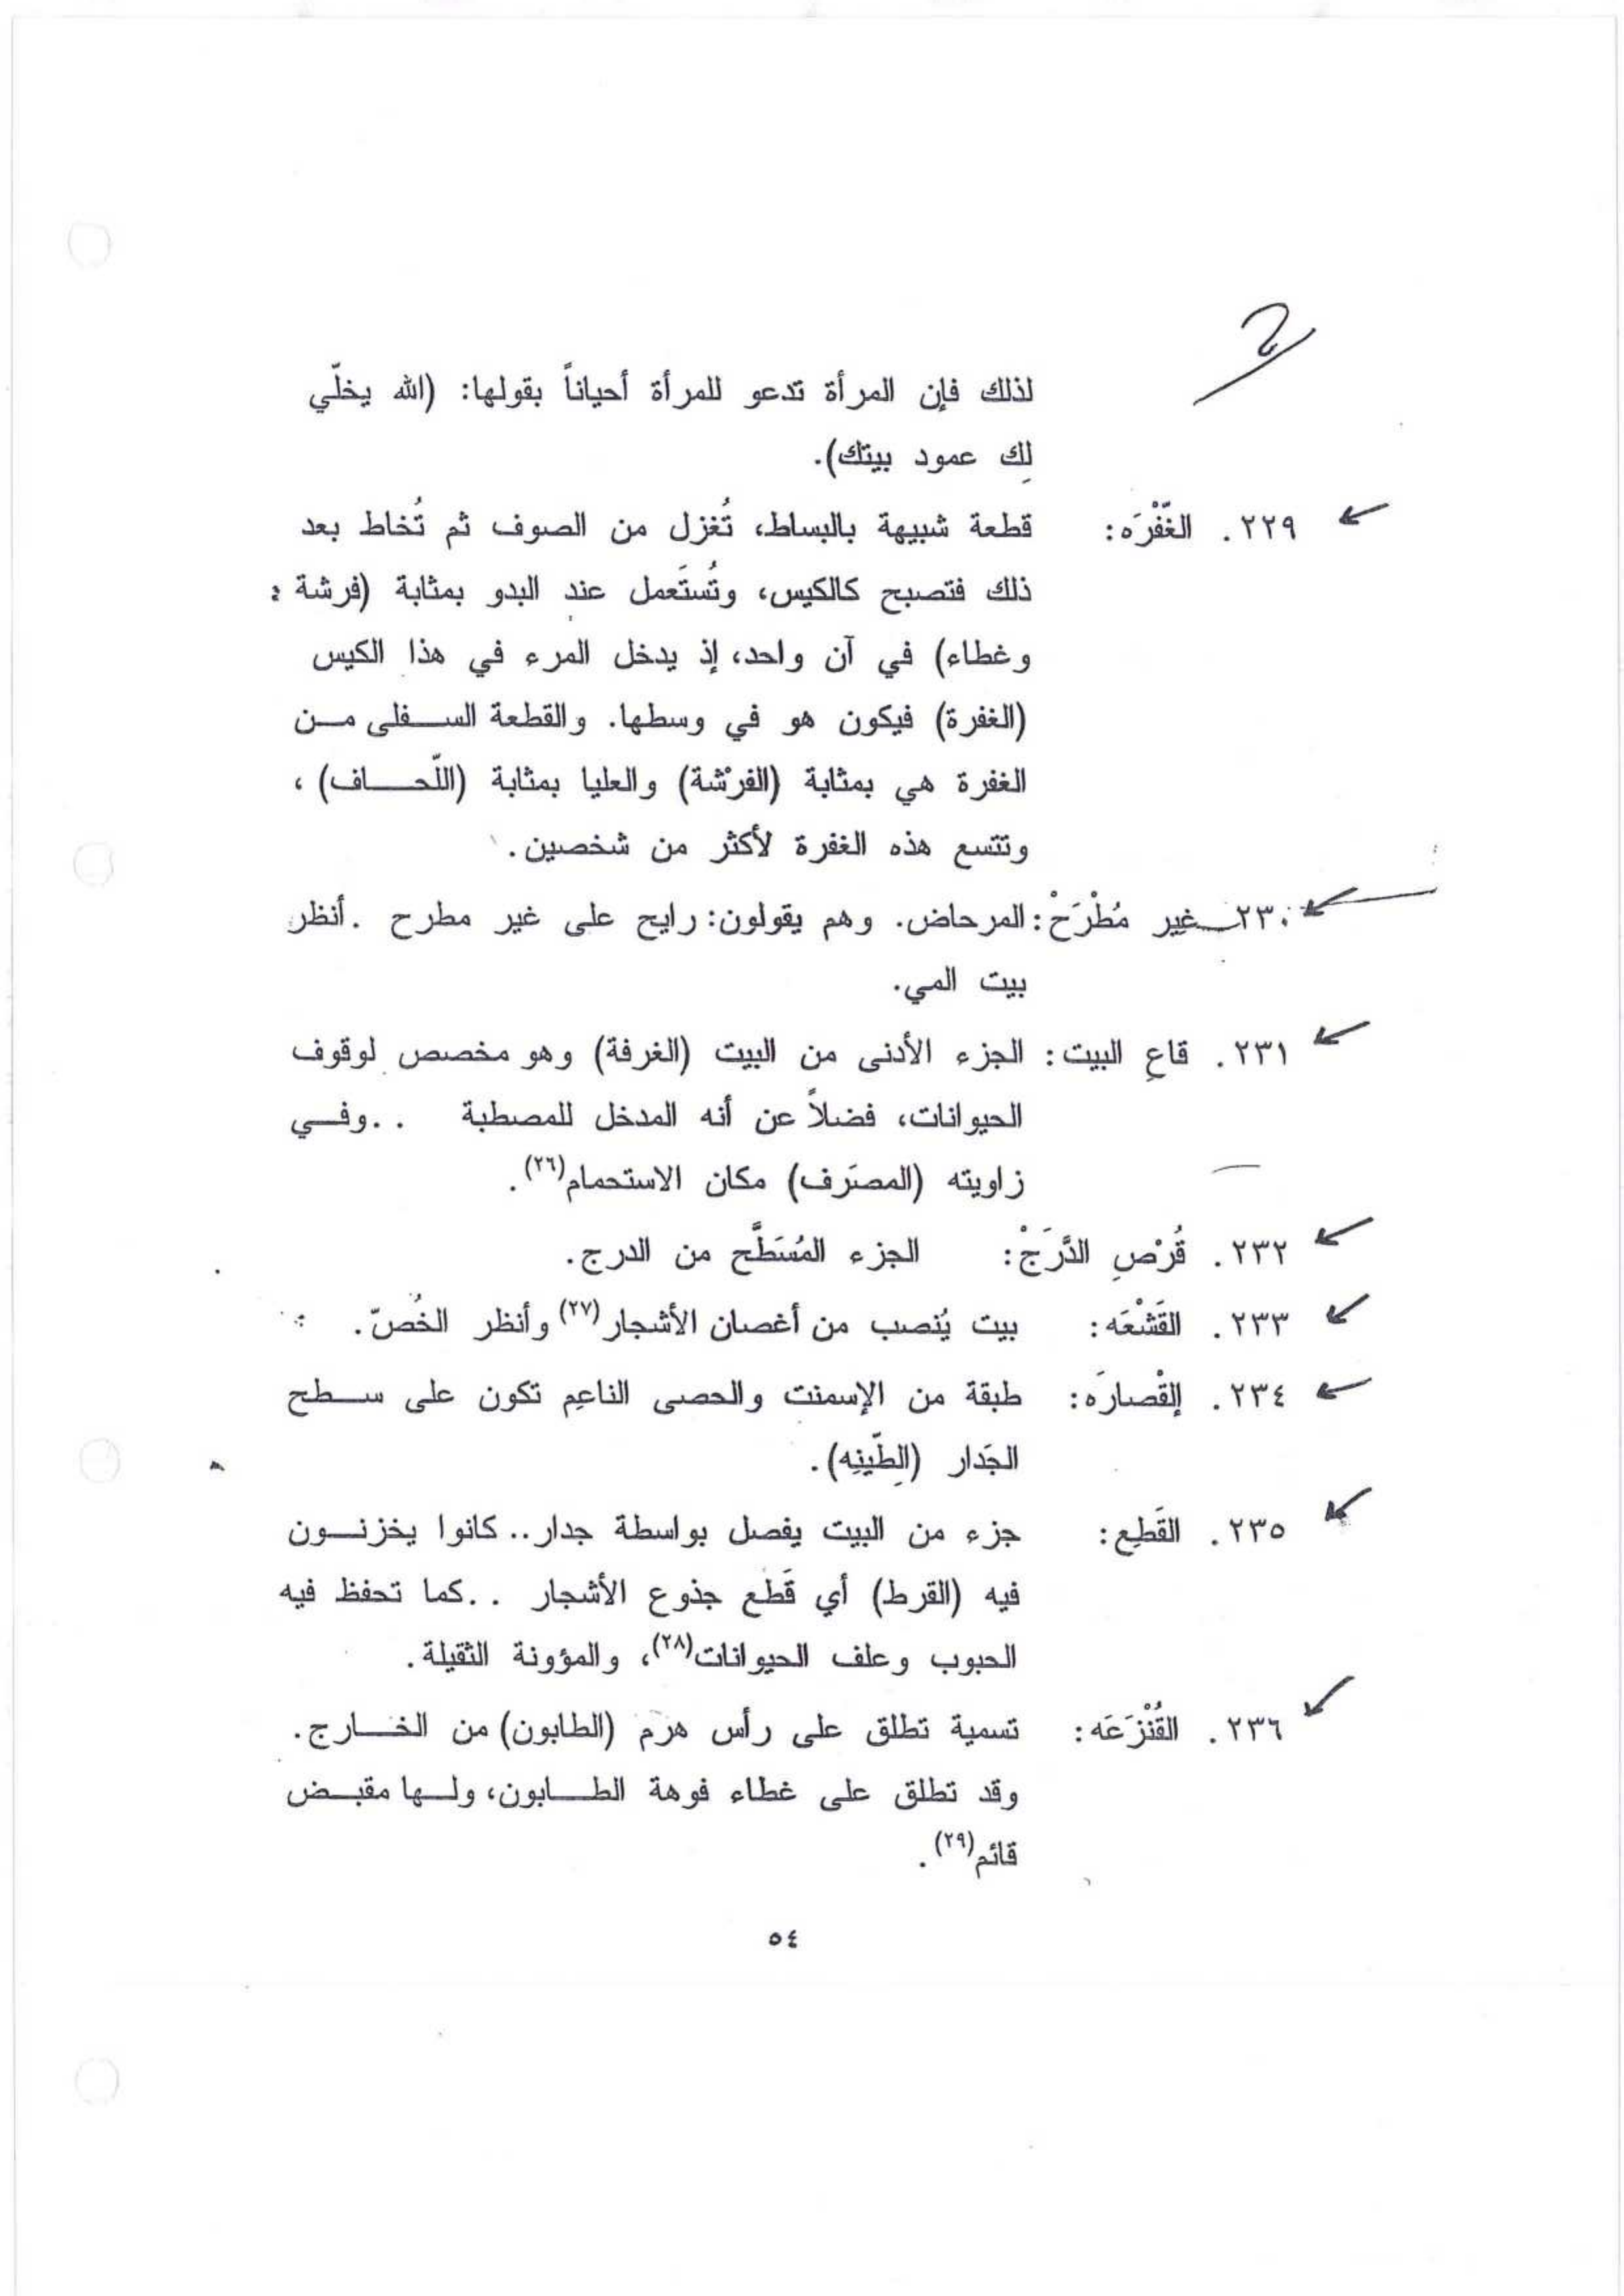 لذلك فإن المرأة تدعو للمرأة أحياناً بقولها: (الله يخلّي
لِك عمود بيتك).
٢٢٩. الغّفْرَه: قطعة شبيهة بالبساط، تُغزل من الصوف ثم تُخاط بعد
ذلك فتصبح كالكيس، وتُستَعمل عند البدو بمثابة (فرشة
وغطاء) في آن واحد، إذ يدخل المرء في هذا الكيس
(الغفرة) فيكون هو في وسطها. والقطعة السفلى من
الغفرة هي بمثابة (الفرْشة) والعليا بمثابة (اللّحاف)،
وتتسع هذه الغفرة لأكثر من شخصين.
٢٣٠. غير مُطْرَحْ: المرحاض. وهم يقولون: رايح على غير مطرح. أنظر
بيت المي.
٢٣١. قاعِ البيت: الجزء الأدنى من البيت (الغرفة) وهو مخصص لوقوف
الحيوانات، فضلاً عن أنه المدخل للمصطبة ..وفي
زاويته (المصرَف) مكان الاستحمام(٢٦).
٢٣٢. قُرْصِ الدَّرَجْ: الجزء المُسَطَّح من الدرج.
٢٣٣. القَشْعَه: بيت يُنصب من أغصان الأشجار(٢٧) وأنظر الخُصّ.
٢٣٤. إلقْصارَه: طبقة من الإسمنت والحصى الناعِم تكون على سطح
الجَدار (الطّينِه).
٢٣٥. القَطِع: جزء من البيت يفصل بواسطة جدار.. كانوا يخزنون
فيه (القرط) أي قَطع جذوع الأشجار ..كما تحفظ فيه
الحبوب وعلف الحيوانات(٢٨)، والمؤونة الثقيلة.
٢٣٦. القُنْزَعَه: تسمية تطلق على رأس هرَم (الطابون) من الخارج.
وقد تطلق على غطاء فوهة الطابون، ولها مقبض
قائم(٢٩).
٥٤